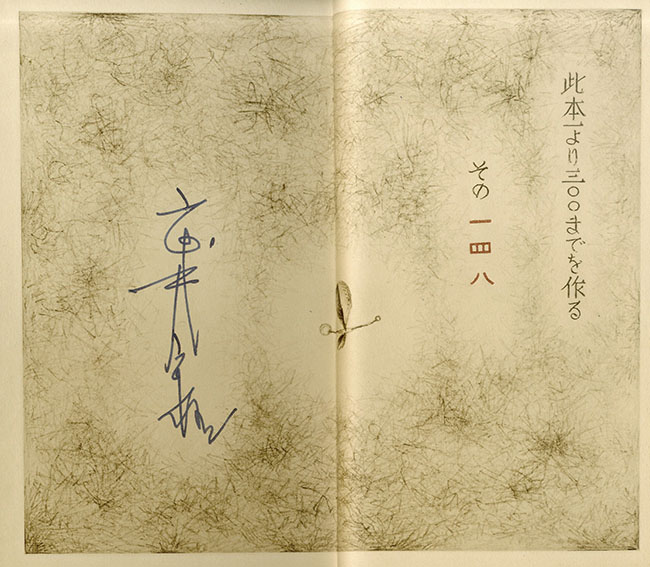 此本一より三〇〇までを作る
その 一四八